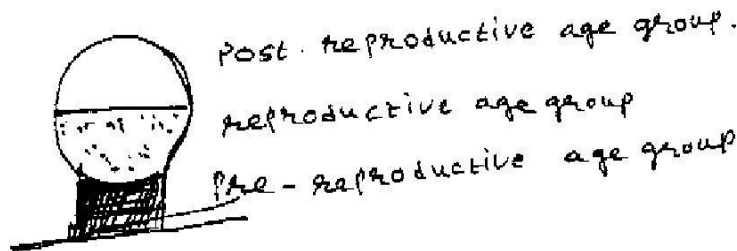 Post. reproductive age group.
reproductive age group
Pre-reproductive age group